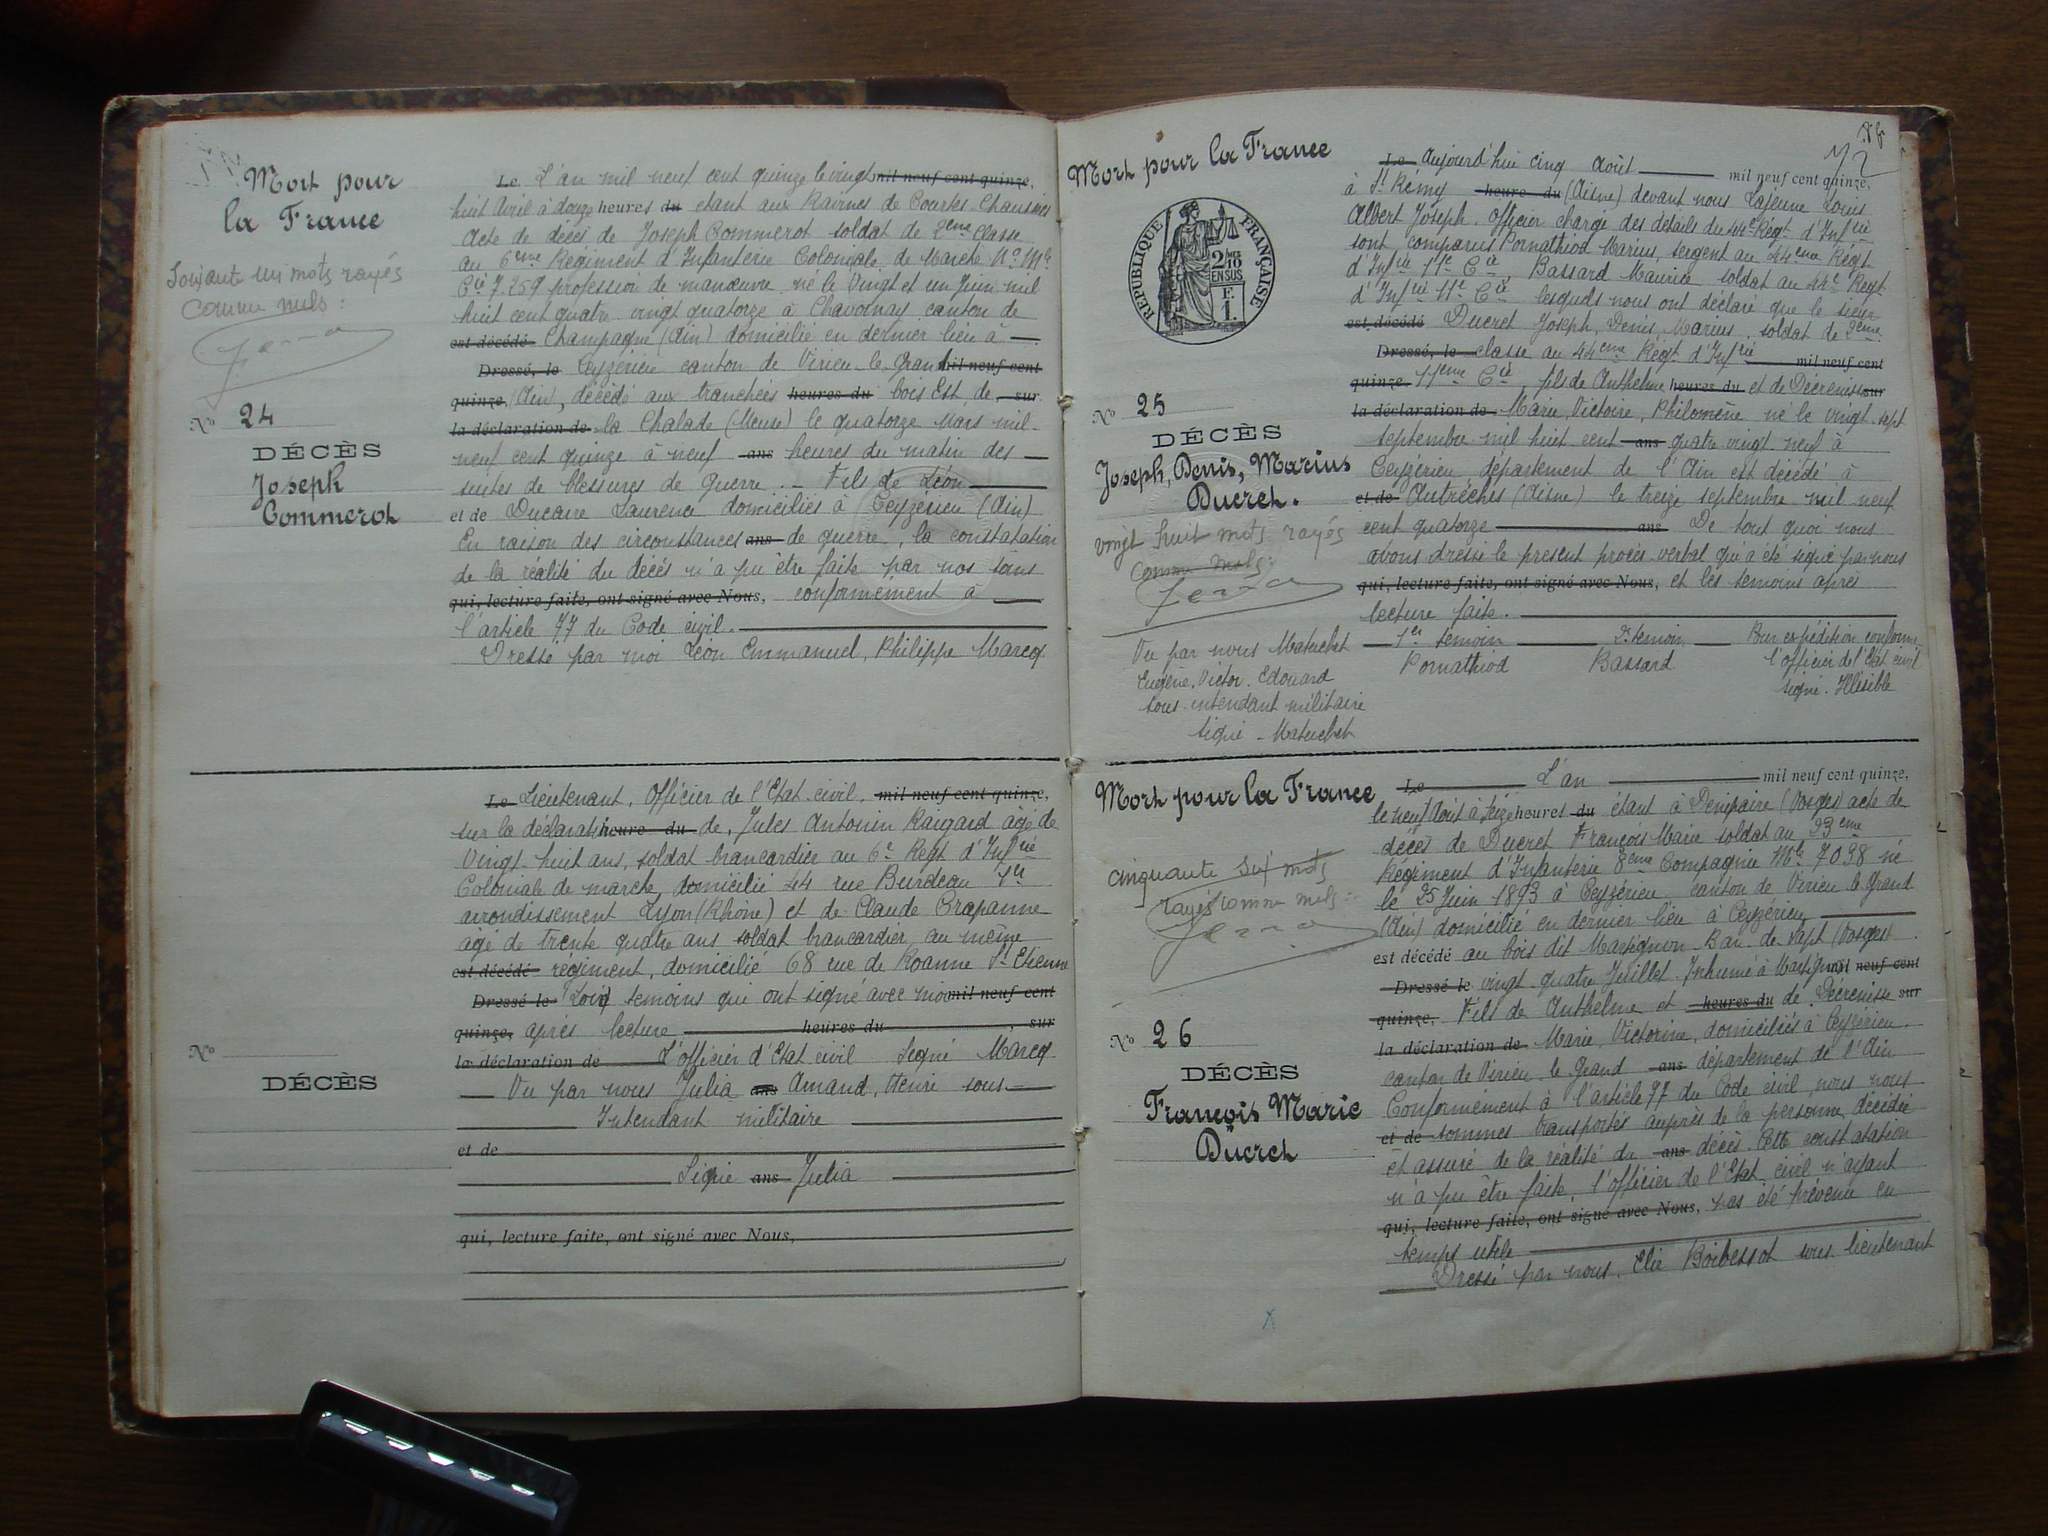 Mort pour
la France
Soixante un mots rayés
comme nuls :
Nº 24
DÉCÈS
Joseph
Commerot
Le L'an mil neuf cent quinze le vingt mil neuf cent quinze,
huit Avril à douze heures du étant aux Ravines de Courtes-Chausses
Acte de décès de Joseph Commerot soldat de 2eme Classe
au 6eme Régiment d'Infanterie Coloniale de Marche Nº Mle
Cié 7.259 profession de manœuvre né le Vingt et un Juin mil
huit cent quatre vingt quatorze à Chavornay canton de
est décédé Champagne (Ain) domicilié en dernier lieu à
Dressé, le Ceyzérieu canton de Virieu-le-Grand mil neuf cent
quinze, (Ain), décédé aux tranchées heures du bois Est de sur
la déclaration de la Chalade (Meuse) le quatorze Mars mil
neuf cent quinze à neuf ans heures du matin des
suites de blessures de guerre. Fils de Léon
et de Ducarre Laurence domiciliés à Ceyzérieu (Ain)
En raison des circonstances ans de guerre, la constatation
de la réalité du décès n'a pu être faite par nos soins
qui, lecture faite, ont signé avec Nous, conformément à
l'article 77 du Code civil.
Dressé par moi Léon Emmanuel, Philippe Marcq
Nº
DÉCÈS
Le Lieutenant, Officier de l'Etat-civil, mil neuf cent quinze,
sur la déclarati heure du de, Jules Antonin Raugard âgé de
Vingt-huit ans, soldat brancardier au 6e Regt d'Infrie
Coloniale de marche, domicilié 44 rue Burdeau 1er
arrondissement Lyon (Rhône) et de Claude Crapanne
âgé de trente quatre ans soldat brancardier au même
est décédé régiment, domicilié 68 rue de Roanne St Etienne
Dressé le (Loire) témoins qui ont signé avec moi mil neuf cent
quinze, après lecture heures du , sur
la déclaration de L'officier d'Etat civil Signé Marcq
Vu par nous Julia ans Amand, Henri sous-
Intendant militaire
et de
Signé ans Julia
qui, lecture faite, ont signé avec Nous,
Mort pour la France
REPUBLIQUE FRANÇAISE
2/10 EN SUS
F. 1.
Nº 25
DÉCÈS
Joseph, Denis, Marius
Ducret.
vingt huit mots rayés
comme nuls :
Vu par nous Matuchet
Eugène, Victor, Edouard
sous-intendant militaire
signé - Matuchet
Le Aujourd'hui cinq Août mil neuf cent quinze,
à St Rémy heure du (Aisne) devant nous Lajeune Louis
Albert Joseph. officier chargé des détails du 44e Régt d'Infrie
sont comparus Pornathiod Marius, sergent au 44eme Régt
d'Infrie 11e Cie, Bassard Maurice soldat au 44e Regt
d'Infrie 11e Cie lesquels nous ont déclaré que le sieur
est décédé Ducret Joseph, Denis, Marius soldat de 2eme
Dressé, le classe au 44eme Régt d'Infrie mil neuf cent
quinze. 11eme Cie, fils de Anthelme heures du et de Décrenisse sur
la déclaration de Marie, Victoire, Philomène né le vingt-sept
septembre mil huit cent ans quatre vingt neuf à
Ceyzérieu, département de l'Ain est décédé à
et de Autrèches (Aisne) le treize septembre mil neuf
cent quatorze ans De tout quoi nous
avons dressé le présent procès verbal qui a été signé par nous
qui, lecture faite, ont signé avec Nous, et les témoins après
lecture faite.
1er témoin 2e témoin Pour expédition conforme
Pornathiod Bassard l'officier de l'Etat civil
signé - Illisible
Mort pour la France
cinquante six mots
rayés comme nuls :
Nº 26
DÉCÈS
François Marie
Ducret
Le L'an mil neuf cent quinze,
le neuf Août à seize heures du étant à Denipaire (Vosges) acte de
décès de Ducret François Marie soldat au 23eme
Régiment d'Infanterie 8eme Compagnie Mle 7038 né
le 25 Juin 1893 à Ceyzérieu canton de Virieu le Grand
(Ain) domicilié en dernier lieu à Ceyzérieu
est décédé au bois dit Martignon Ban-de-Sapt (Vosges)
Dressé le vingt-quatre Juillet. Inhumé à Martignon mil neuf cent
quinze, Fils de Anthelme et heures du de Décrenisse sur
la déclaration de Marie, Victorine, domiciliés à Ceyzérieu,
canton de Virieu-le-Grand ans département de l'Ain
Conformément à l'article 77 du Code civil nous nous
et de sommes transportés auprès de la personne décédée
et assuré de la réalité du ans décès. Cette constatation
n'a pu être faite, l'officier de l'Etat civil n'ayant
qui, lecture faite, ont signé avec Nous, pas été prévenu en
temps utile
Dressé par nous, Elie Boibessot sous-lieutenant